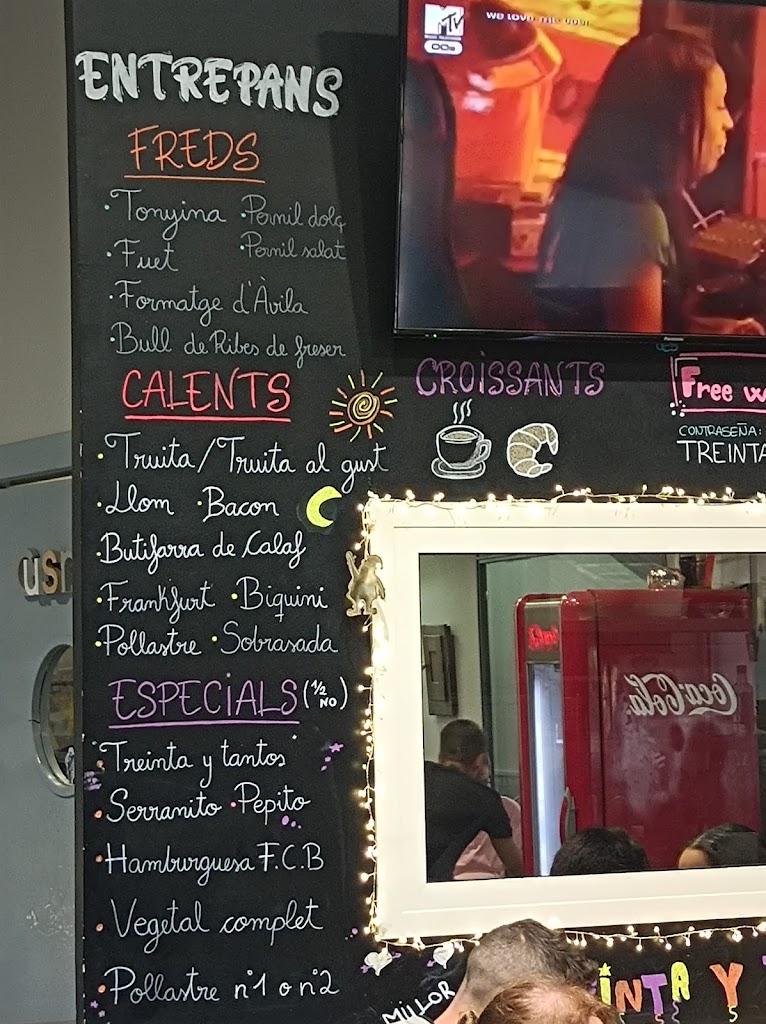 ENTREPANS
FREDS
· Tonyina · Pernil dolç
· Fuet · Pernil salat
· Formatge d'Àvila
· Bull de Ribes de freser
CALENTS
· Truita / Truita al gust
· Llom · Bacon
· Butifarra de Calaf
· Frankfurt · Biquini
· Pollastre · Sobrasada
ESPECIALS (1/2 NO)
· Treinta y tantos
· Serranito · Pepito
· Hamburguesa F.C.B
· Vegetal complet
· Pollastre nº1 o nº2
MTV
00s
WE LOVE THE 00s!
Panasonic
CROISSANTS
Free w
CONTRASEÑA:
TREINTA
Coca-Cola
MILLOR
INTA Y